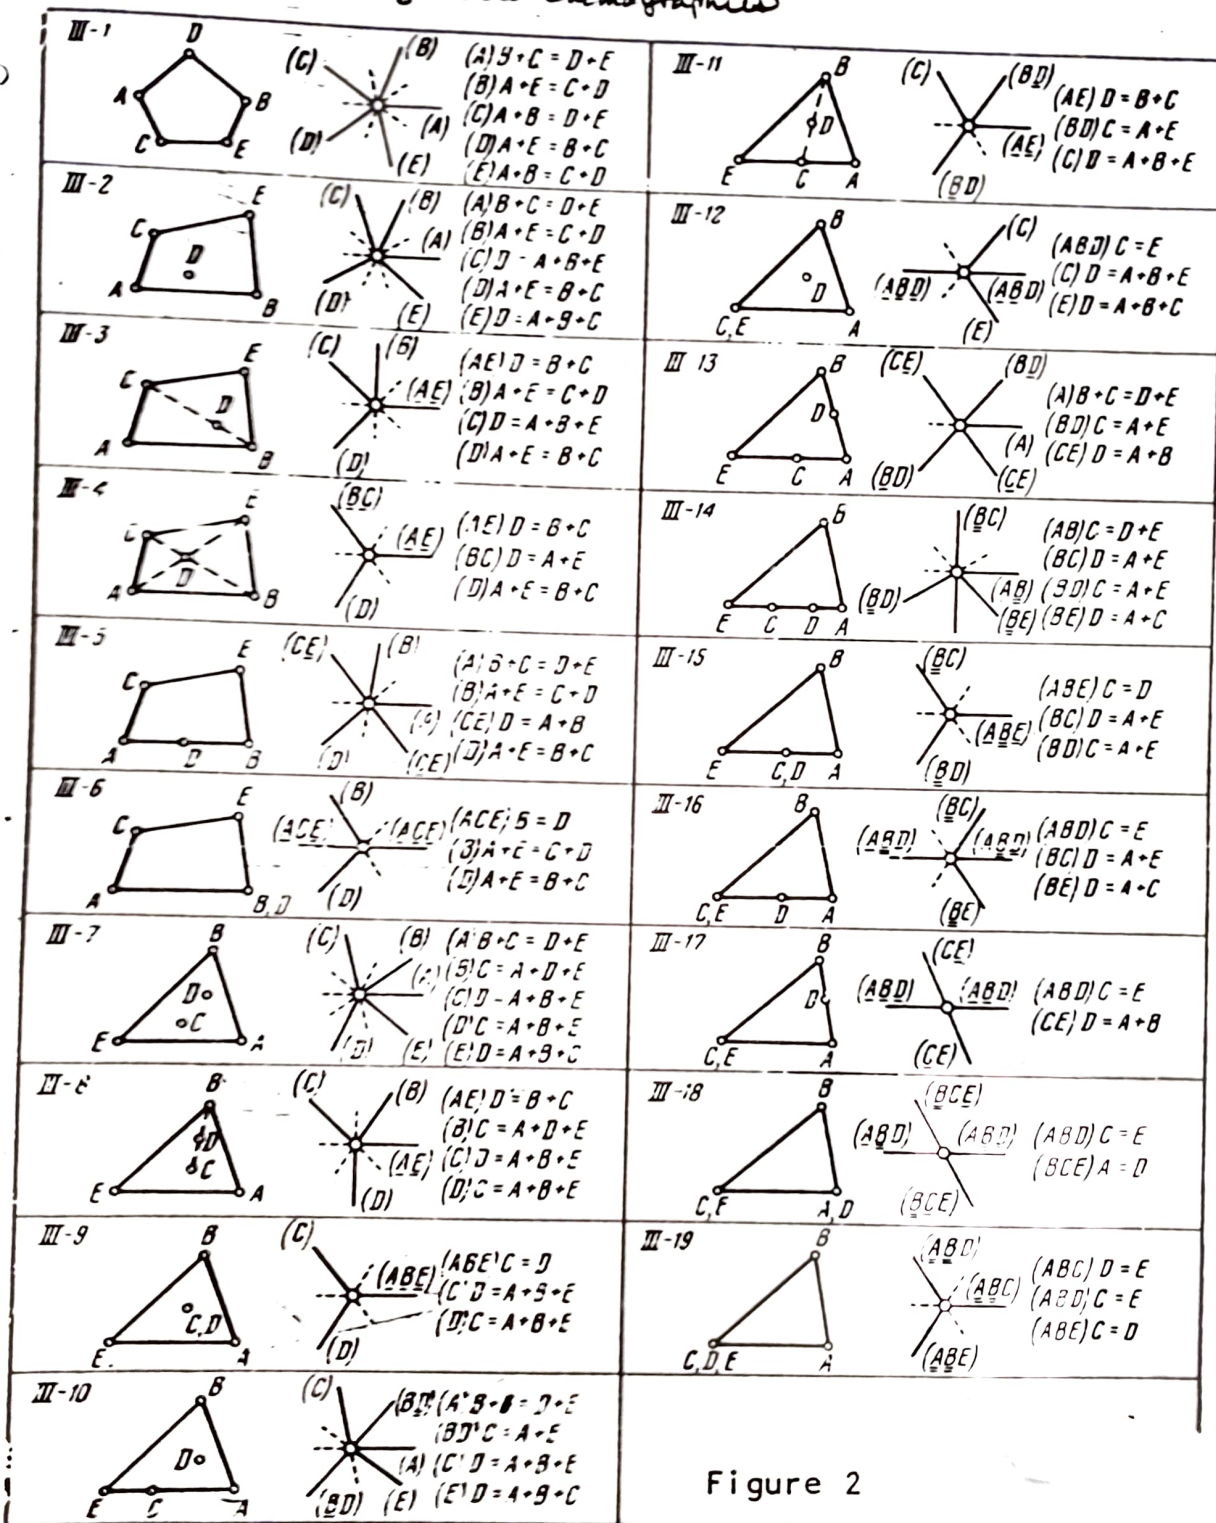 III-1
D
A
B
C
E
(C)
(B)
(D)
(A)
(E)
(A) B+C = D+E
(B) A+E = C+D
(C) A+B = D+E
(D) A+E = B+C
(E) A+B = C+D
III-2
E
C
D
A
B
(C)
(B)
(A)
(D)
(E)
(A) B+C = D+E
(B) A+E = C+D
(C) D = A+B+E
(D) A+E = B+C
(E) D = A+B+C
III-3
E
C
D
A
B
(C)
(B)
(AE)
(D)
(AE) D = B+C
(B) A+E = C+D
(C) D = A+B+E
(D) A+E = B+C
III-4
E
C
D
A
B
(BC)
(AE)
(D)
(AE) D = B+C
(BC) D = A+E
(D) A+E = B+C
III-5
E
C
A
D
B
(CE)
(B)
(A)
(D)
(CE)
(A) B+C = D+E
(B) A+E = C+D
(CE) D = A+B
(D) A+E = B+C
III-6
E
C
A
B,D
(B)
(ACE)
(ACE)
(D)
(ACE) B = D
(B) A+E = C+D
(D) A+E = B+C
III-7
B
D
C
E
A
(C)
(B)
(A)
(D)
(E)
(A) B+C = D+E
(B) C = A+D+E
(C) D = A+B+E
(D) C = A+B+E
(E) D = A+B+C
III-8
B
D
C
E
A
(C)
(B)
(AE)
(D)
(AE) D = B+C
(B) C = A+D+E
(C) D = A+B+E
(D) C = A+B+E
III-9
B
C,D
E
A
(C)
(ABE)
(D)
(ABE) C = D
(C) D = A+B+E
(D) C = A+B+E
III-10
B
D
E
C
A
(C)
(BD)
(A)
(BD)
(E)
(A) B+C = D+E
(BD) C = A+E
(C) D = A+B+E
(E) D = A+B+C
III-11
B
D
E
C
A
(C)
(BD)
(AE)
(BD)
(AE) D = B+C
(BD) C = A+E
(C) D = A+B+E
III-12
B
D
C,E
A
(C)
(ABD)
(ABD)
(E)
(ABD) C = E
(C) D = A+B+E
(E) D = A+B+C
III 13
B
D
E
C
A
(CE)
(BD)
(A)
(BD)
(CE)
(A) B+C = D+E
(BD) C = A+E
(CE) D = A+B
III-14
B
E
C
D
A
(BC)
(BD)
(AB)
(BE)
(AB) C = D+E
(BC) D = A+E
(BD) C = A+E
(BE) D = A+C
III-15
B
E
C,D
A
(BC)
(ABE)
(BD)
(ABE) C = D
(BC) D = A+E
(BD) C = A+E
III-16
B
C,E
D
A
(BC)
(ABD)
(ABD)
(BE)
(ABD) C = E
(BC) D = A+E
(BE) D = A+C
III-17
B
D
C,E
A
(CE)
(ABD)
(ABD)
(CE)
(ABD) C = E
(CE) D = A+B
III-18
B
C,E
A,D
(BCE)
(ABD)
(ABD)
(BCE)
(ABD) C = E
(BCE) A = D
III-19
B
C,D,E
A
(ABD)
(ABC)
(ABE)
(ABC) D = E
(ABD) C = E
(ABE) C = D
Figure 2